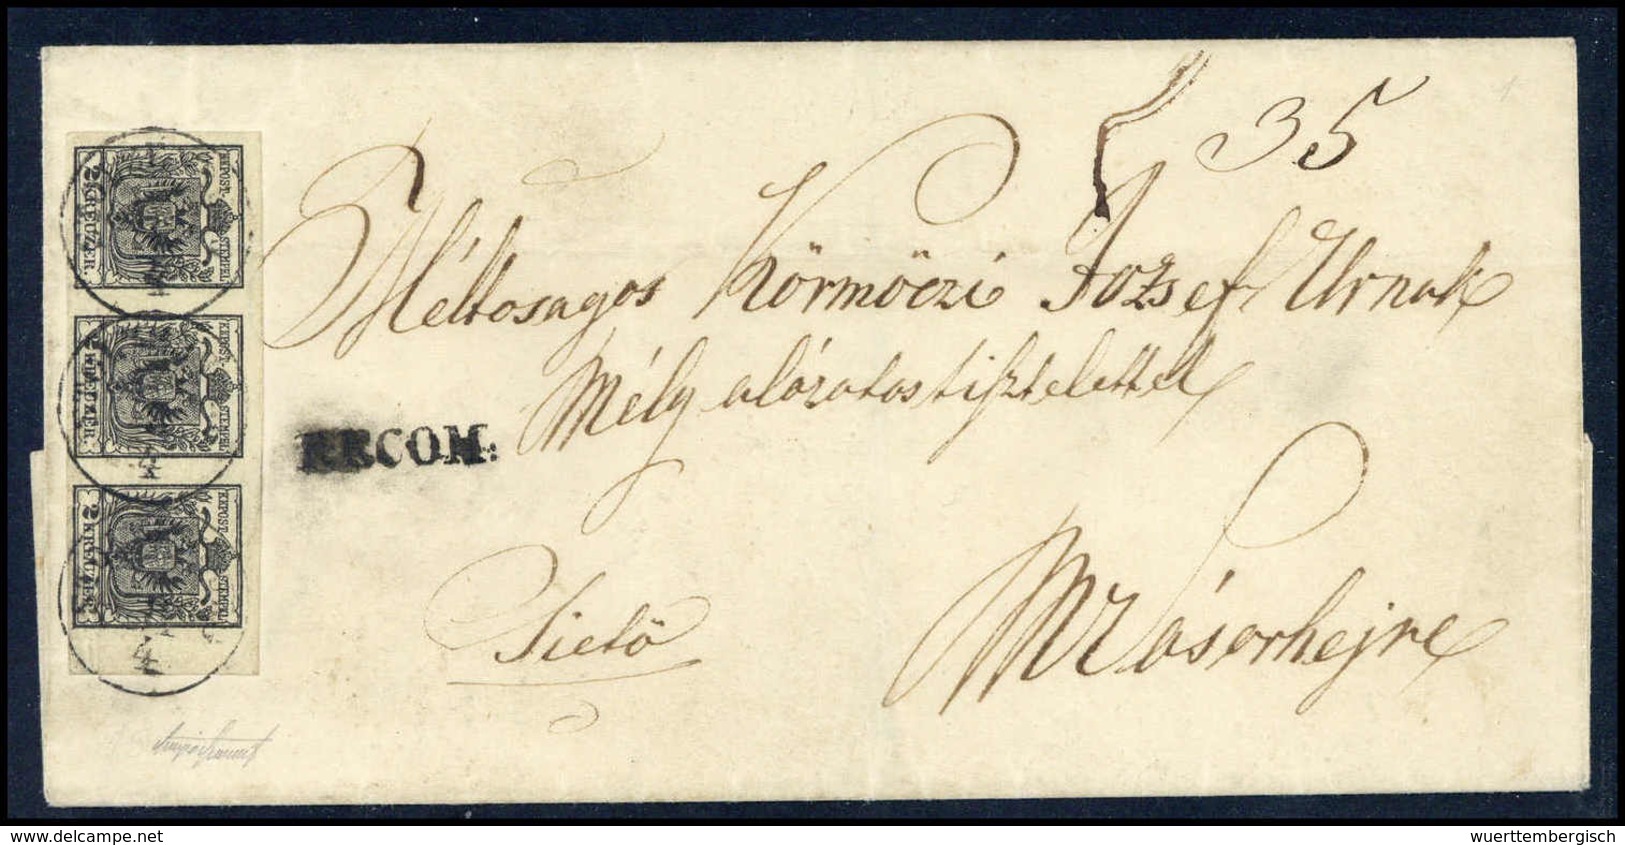 35
Méltosagos Körmöczi Jozsef Urnak
Mély alózatos tisztelettel
RECOM:
Sietö
M Vásorhejre
KKPOST-STEMPEL
2 KREUZER.
KKPOST-STEMPEL
2 KREUZER.
KKPOST-STEMPEL
2 KREUZER.
www.delcampe.net
wuerttembergisch